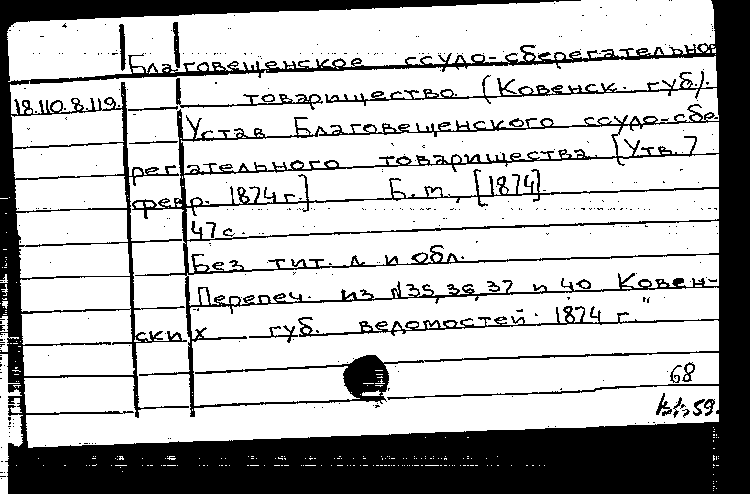 Благовещенское ссудо-сберегательное
18.110.8.119. товарищество (Ковенск. губ.).
Устав Благовещенского ссудо-сбе
регательного товарищества. [Утв. 7
февр. 1874 г.] Б.м., [1874].
47 с.
Без тит. л. и обл.
Перепеч. из №35, 36, 37 и 40 Ковен-
ских губ. ведомостей. 1874 г."
68
59.